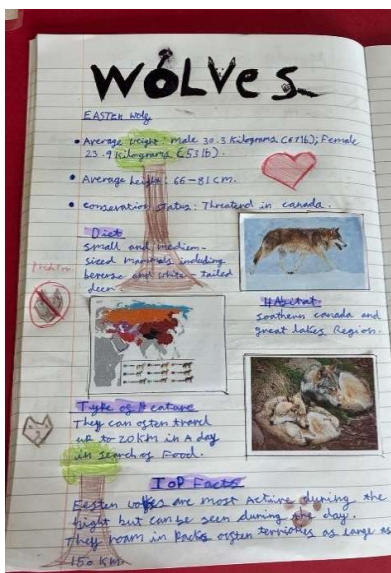 WOLVes
EASTEN Wolf
• Average weight: male 30.3 Kilograms (67lb); Female
23.9 Kilograms (53 lb).
• Average height: 66-81 cm.
• conservation status: Threatend in canada.
Diet
small and mediem-
sized mammals including
and white-tailed
deer
HAbitat
southern canada and
great lakes Region.
Type of
They can often travel
up to 20 KM in A day
in search of Food.
ToP Facts
Easten wolfes are most Active during the
night but can be seen during the day.
They roam in Packs often terriories as large as
150 KM.